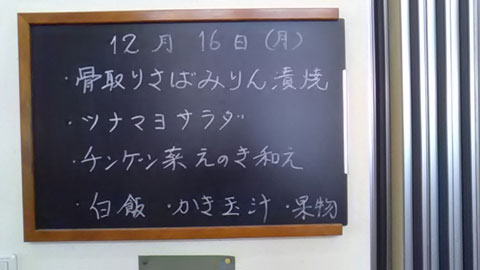 12月16日(月)
・骨取りさばみりん漬焼
・ツナマヨサラダ
・チンゲン菜えのき和え
・白飯 ・かき玉汁 ・果物